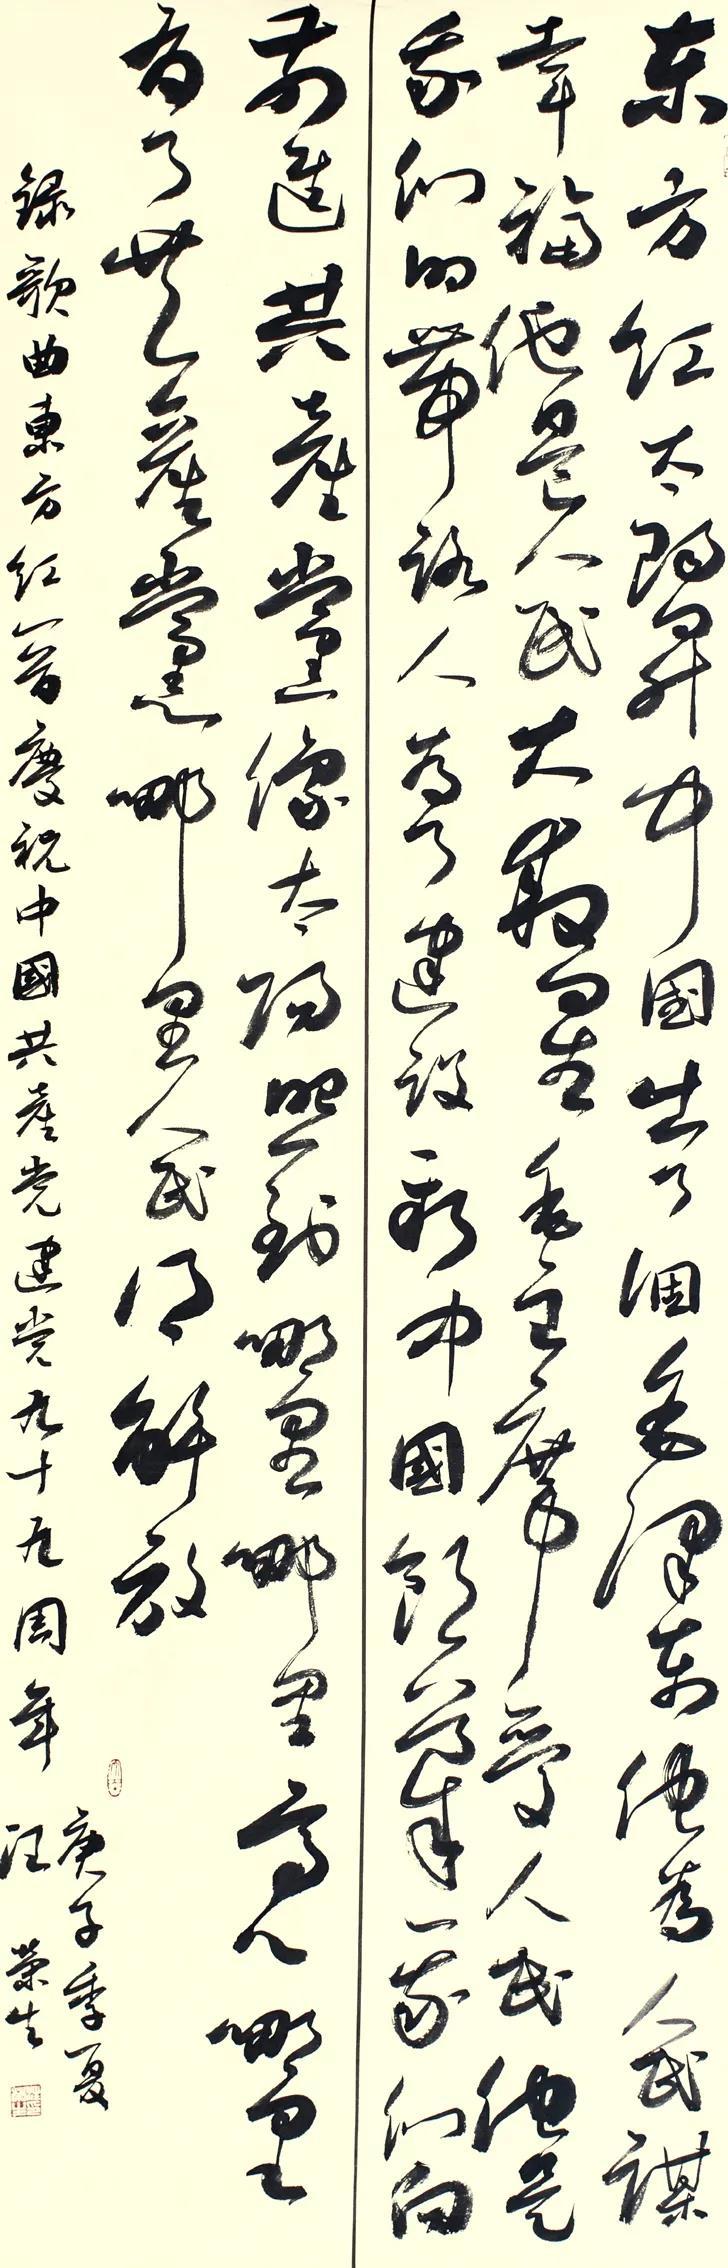 东方红太阳昇中国出了個毛泽东他為人民謀
幸福他是人民大救星毛主席爱人民他是
我们的带路人為了建设新中國领導我们向
前進共產黨像太阳照到哪里哪里亮哪里
有了共產黨哪里人民得解放
録歌曲東方红一首慶祝中國共產党建党九十九周年
庚子季夏
汪荣生